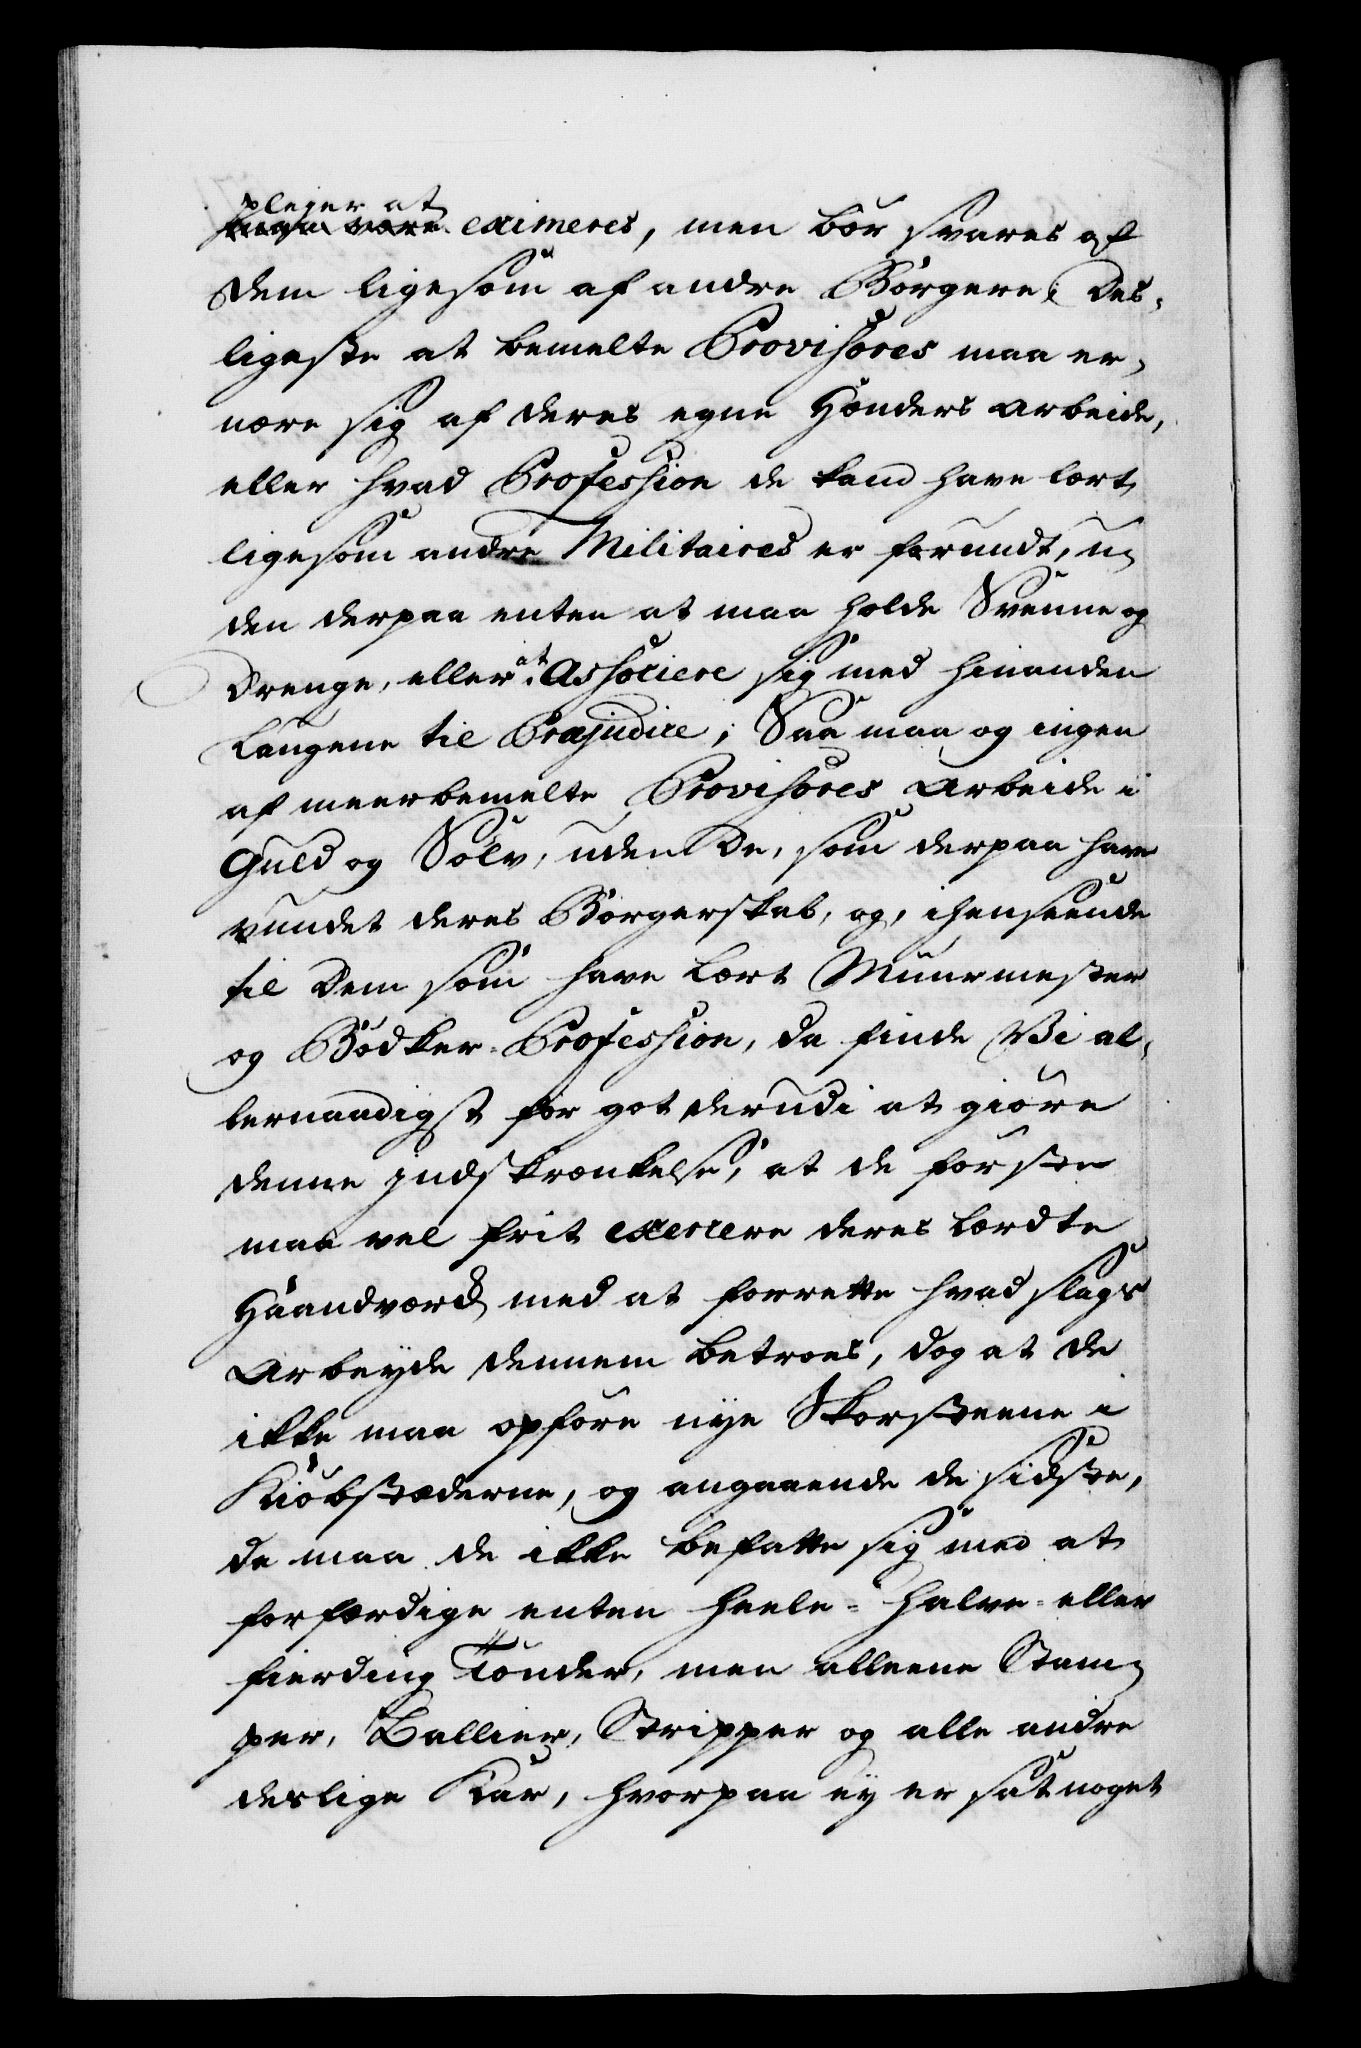 plejer at
eximeres, men bör svares af
dem ligesom af andre Börgere; Des-
ligeste at bemelte Provisores maa er-
nære sig af deres egne Hænders arbeide,
eller hvad Profession de kand have lært
ligesom andre Militaires er forundt, u-
den derpaa enten at maa holde Svenne og
Drenge, eller at Associere sig med hinanden
Laugene til Præjudice; Saa maa og ingen
af meerbemelte Provisores Arbeide i
Guld og Sölv, uden De, som derpaa have
vundet deres Borgerskab, og, i henseende
til Dem som have Lært Muurmester
og Bödker-Profession, da finde Vi al-
lernaadigst for got derudi at giöre
denne Indskrænkelse, at de förste
maa vel frit exercere deres lærdte
Haandværck med at forrette hvad slags
Arbeyde dennem betroes, dog at de
ikke maa opföre nye Skorsteene i
Kiöbstæderne, og angaaende de sidste,
da maa de ikke befatte sig med at
forfærdige enten Heele- halve- eller
fierding Tönder, men alleene Stam-
per, Ballier, Stripper og alle andre
deslige Kar, hvorpaa ey er sat noget